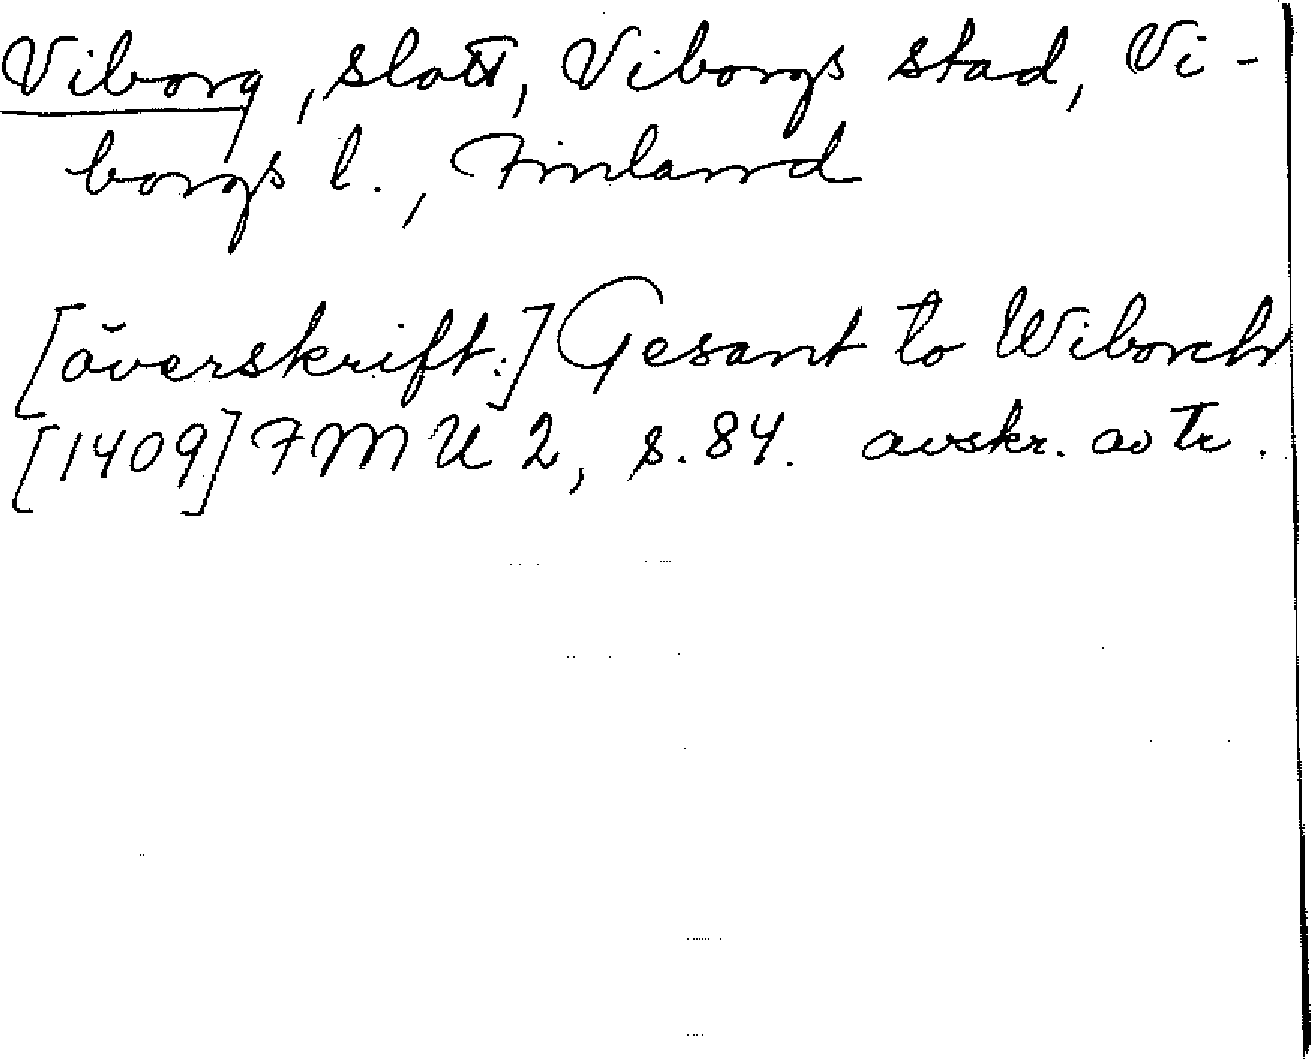 Viborg, slott, Viborgs stad, Vi-
borgs l., Finland
[överskrift:] Gesant to Wiborch
[1409] FMU 2, s. 84. avskr. av tr.